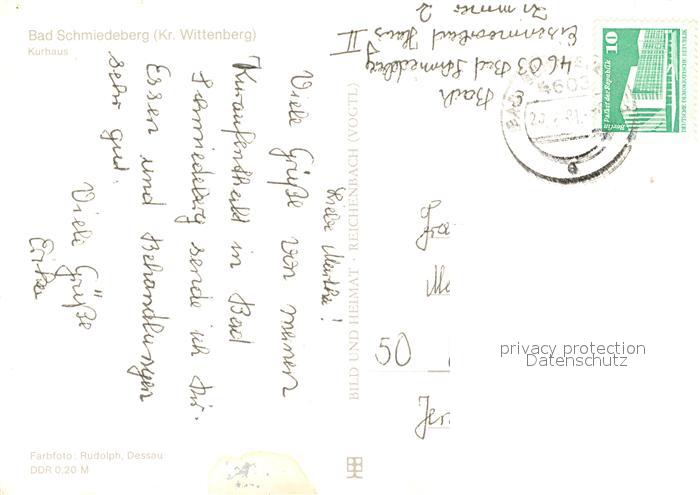 Bad Schmiedeberg (Kr. Wittenberg)
Kurhaus
Liebe Martha!
Viele Grüße von meinen
Kuraufenthalt in Bad
Schmiedeberg sende ich Dir.
Essen und Behandlungen
sehr gut.
Viele Grüße
Erika
BILD UND HEIMAT · REICHENBACH (VOGTL)
4603 Bad Schmiedeberg
Eisenmoorbad Haus II
Zimmer 2
10
Palast der Republik
Berlin
DEUTSCHE DEMOKRATISCHE REPUBLIK
4603
50
privacy protection
Datenschutz
Farbfoto: Rudolph, Dessau
DDR 0,20 M